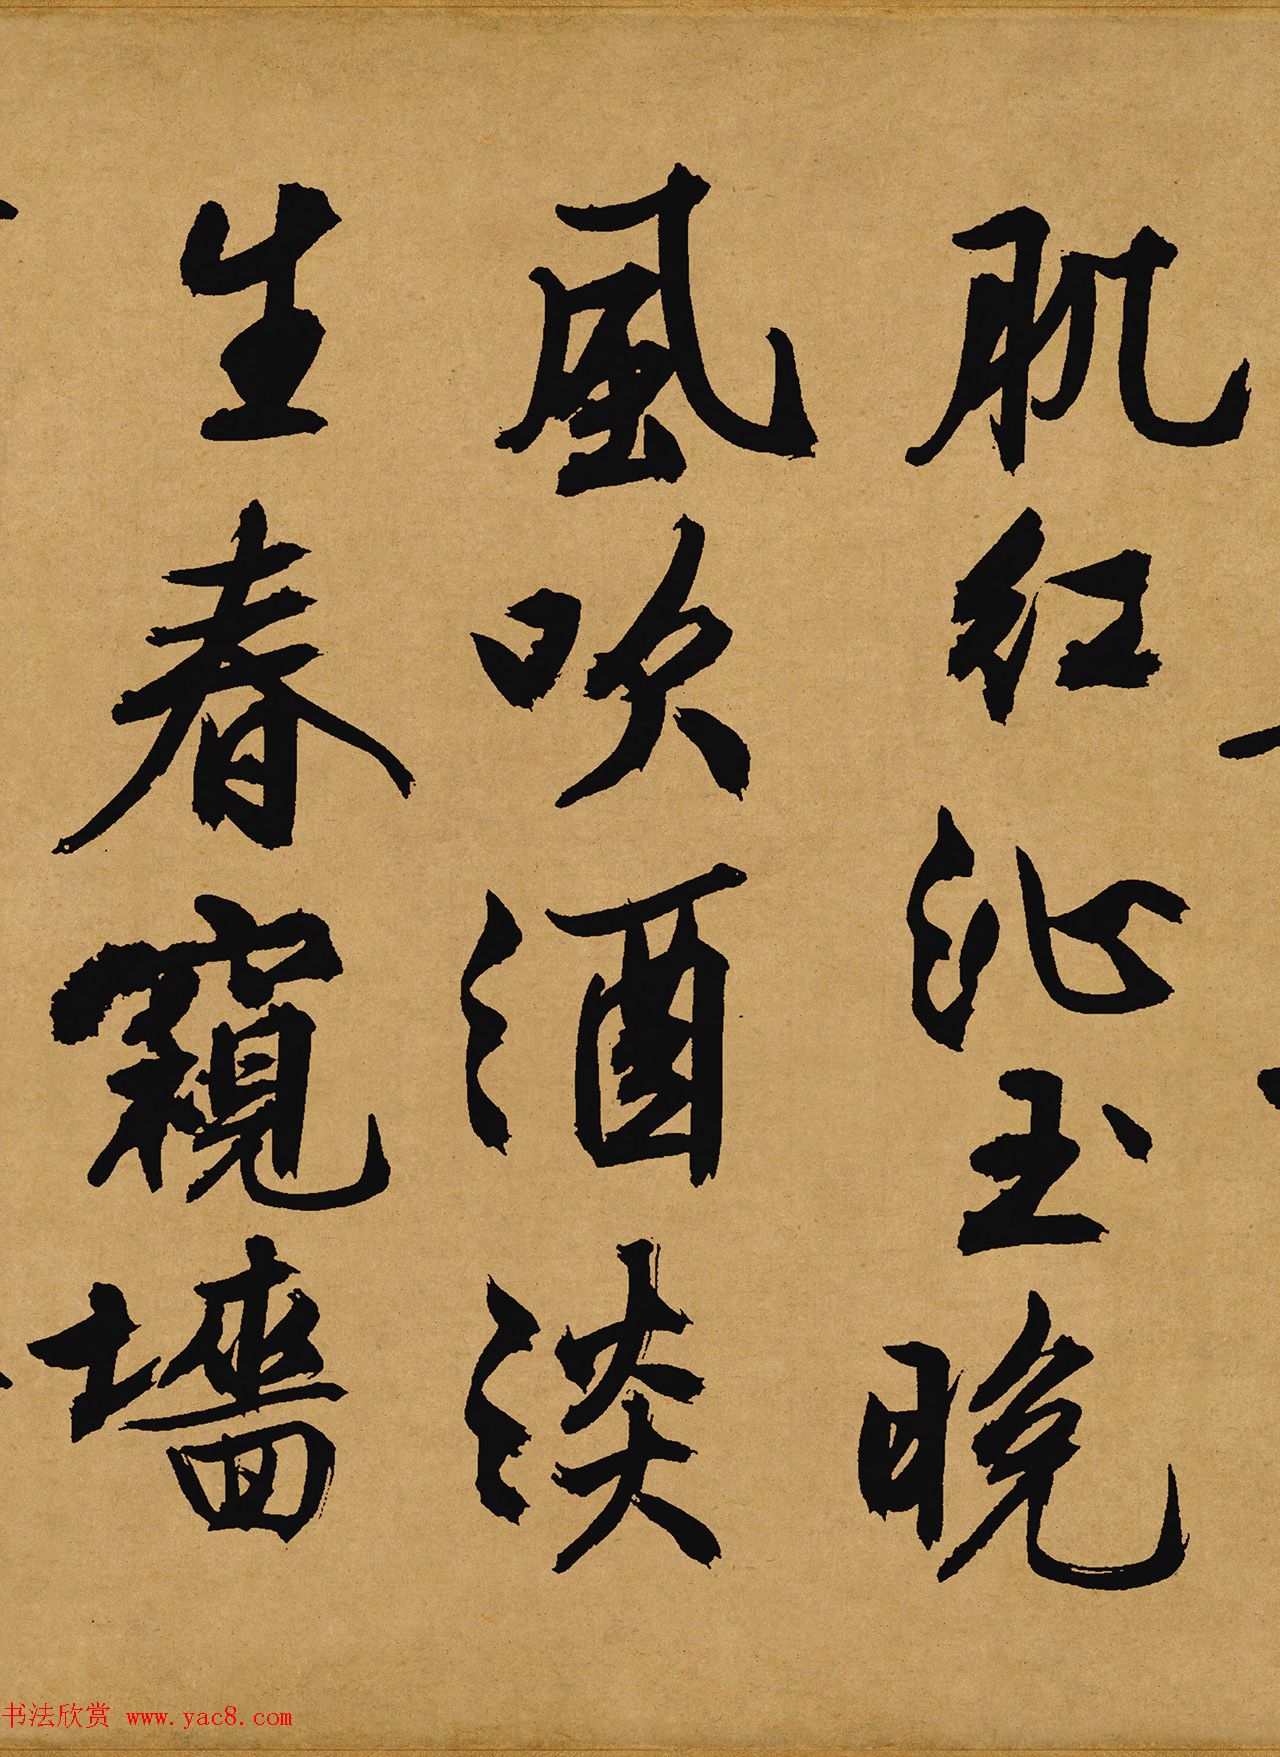 肌红沁玉晚
風吹酒淡
生春窺墻
书法欣赏 www.yac8.com